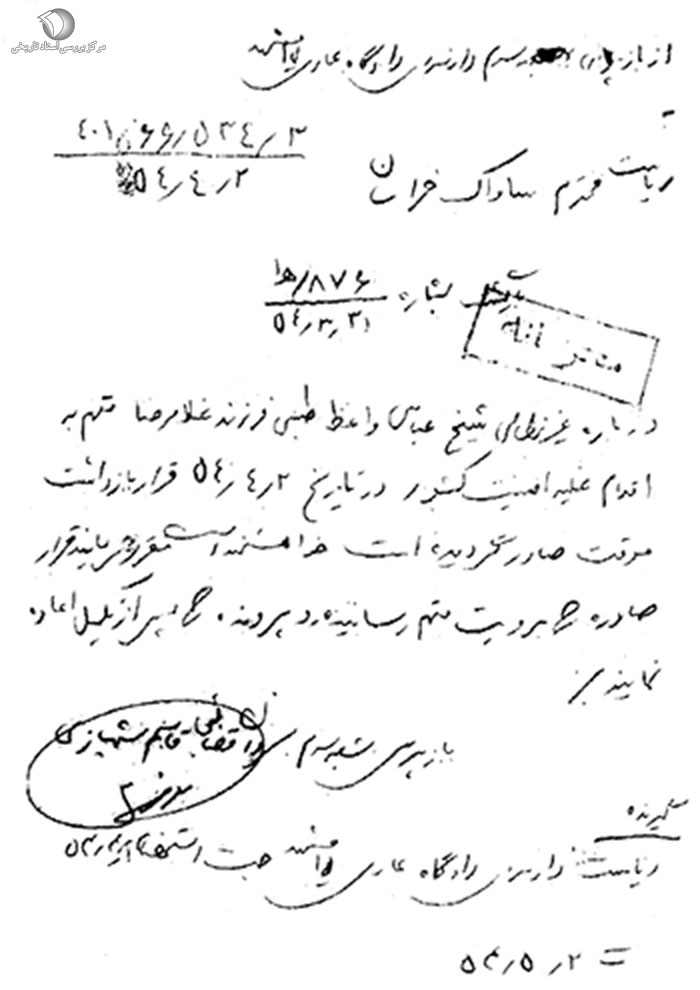 مرکز بررسی اسناد تاریخی
از بازپرسی شعبه سوم دادسرای دادگاه عادی مشهد
۴۰۱/۶۶/۵۳۴/۳
۵۴/۴/۲
ریاست محترم ساواک خراسان
بازگشت بشماره
۸۷۶/ه‍۱
۵۴/۳/۳۱
درباره غیرنظامی شیخ عباس واعظ طبسی فرزند غلامرضا متهم به
اقدام علیه امنیت کشور در تاریخ ۵۴/۴/۲ قرار بازداشت
موقت صادر گردیده است خواهشمند است مقرر فرمایند قرار
صادره را برویت متهم رسانیده و پرونده را پس از تکمیل اعاده
نمایند
بازپرس شعبه سوم قاسم
گیرنده
ریاست دادسرای دادگاه عادی مشهد جهت استحضار
= ۵۴/۵/۲